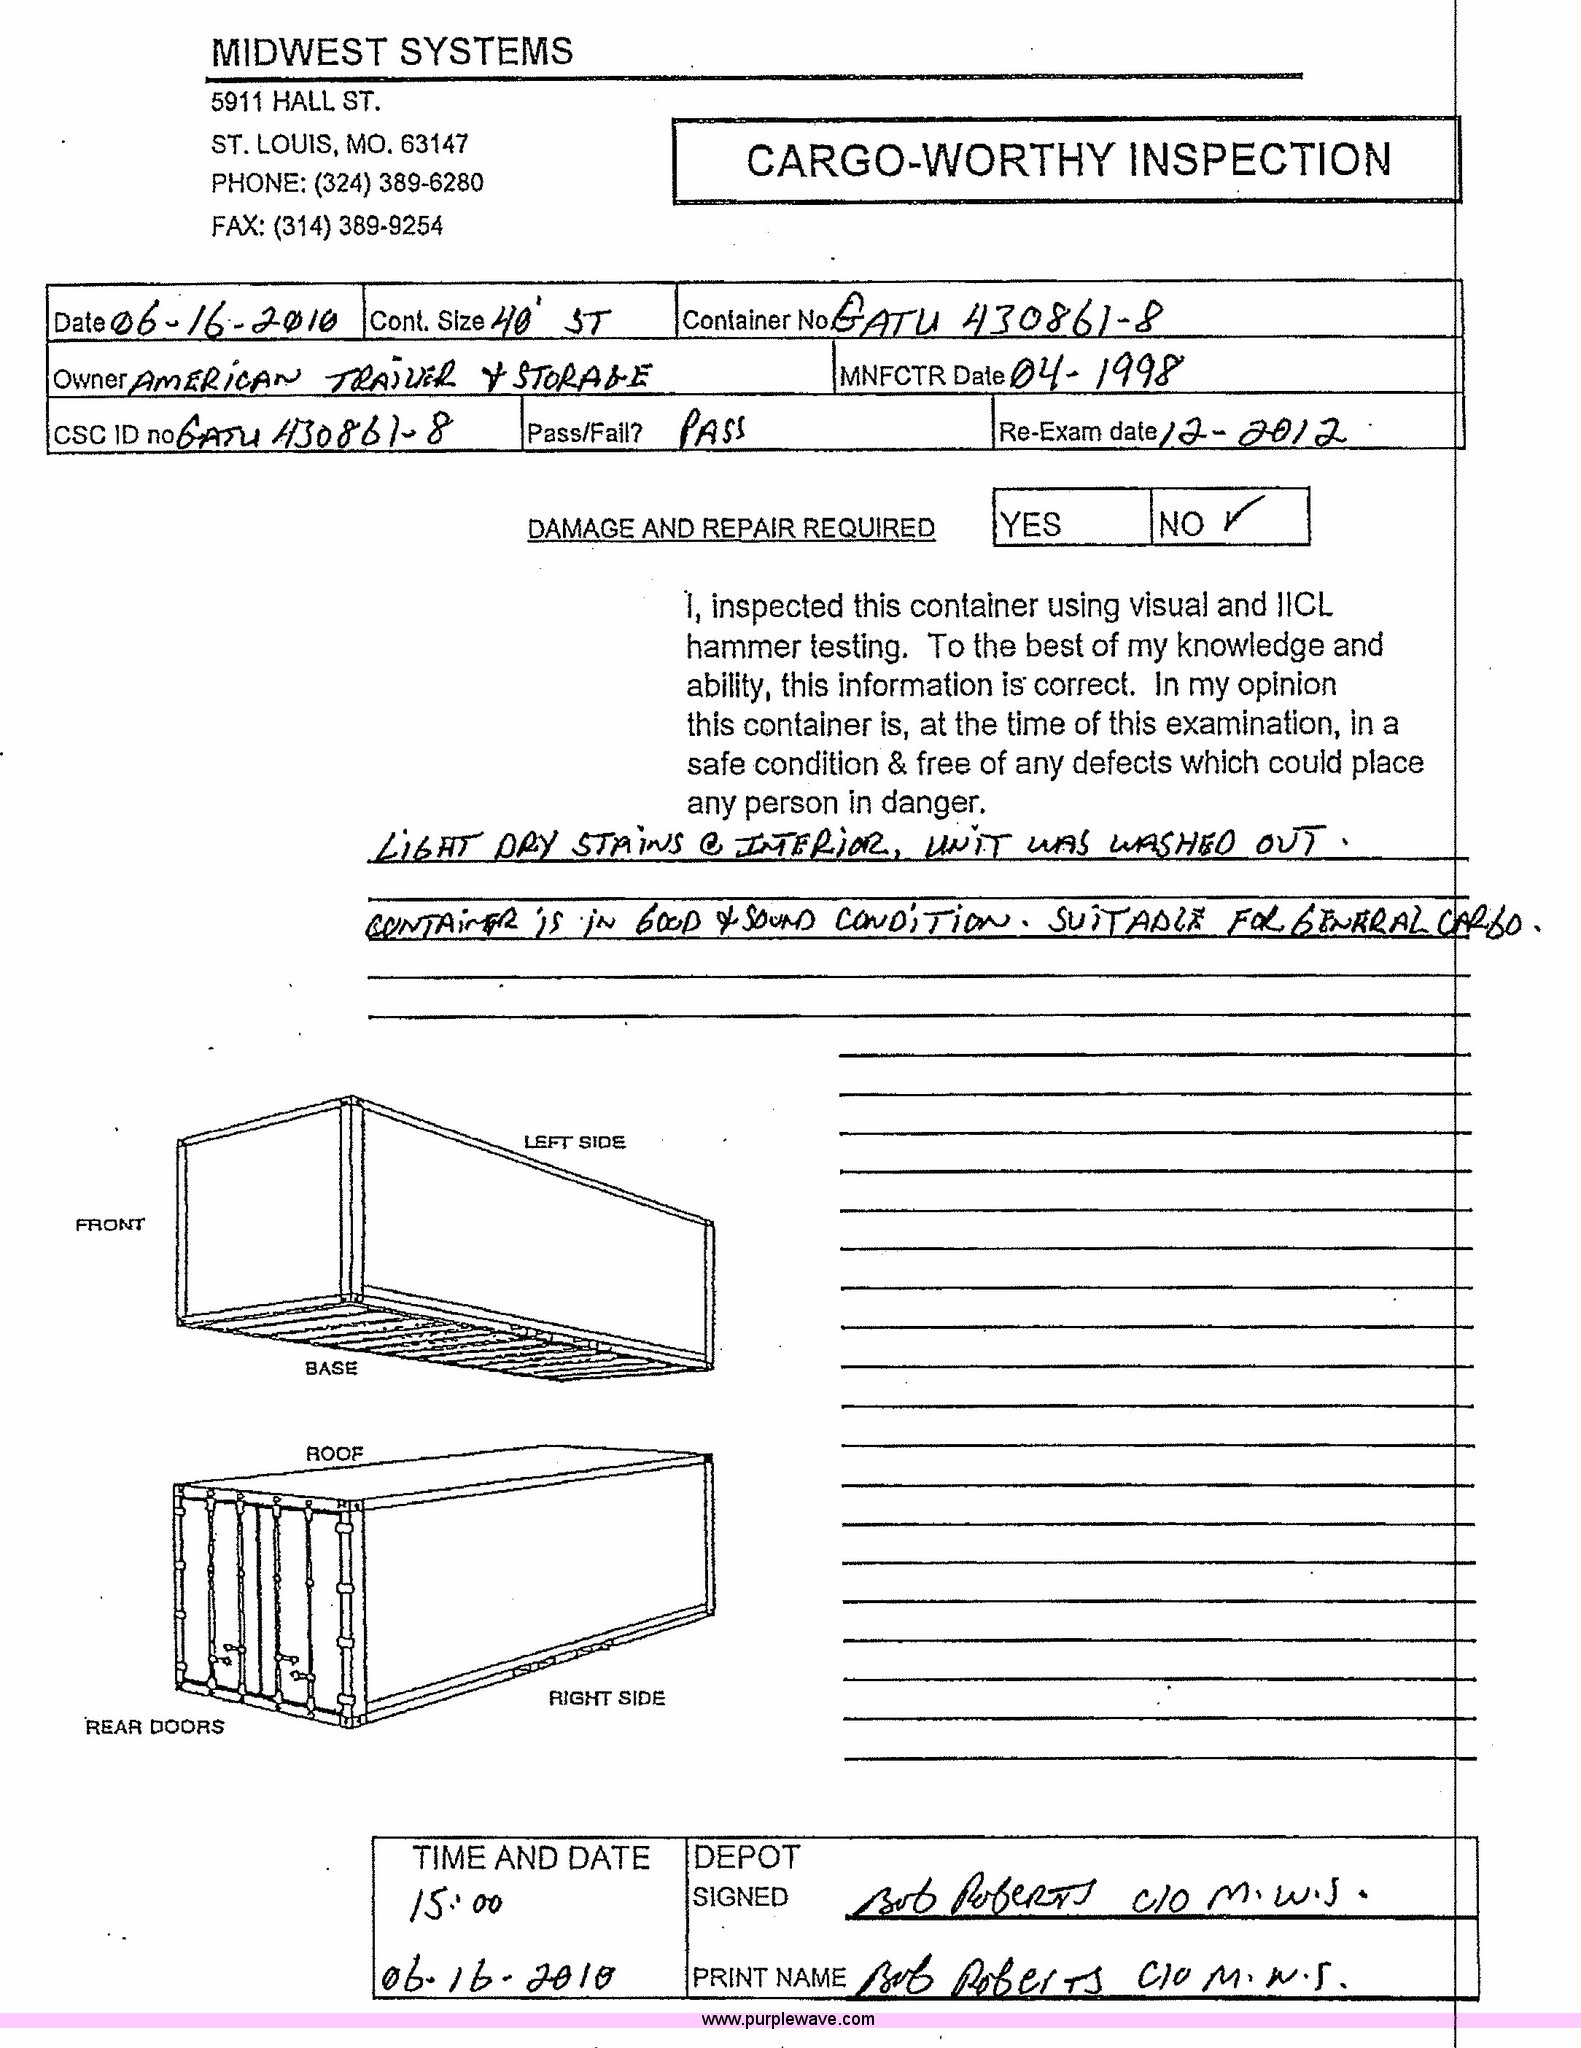 MIDWEST SYSTEMS
5911 HALL ST.
ST. LOUIS, MO. 63147
PHONE: (324) 389-6280
FAX: (314) 389-9254
CARGO-WORTHY INSPECTION
Date 06-16-2010 Cont. Size 40' ST Container No. GATU 430861-8
Owner AMERICAN TRAILER & STORAGE MNFCTR Date 04-1998
CSC ID no GATU 430861-8 Pass/Fail? PASS Re-Exam date 12-2012
DAMAGE AND REPAIR REQUIRED YES NO ✓
I, inspected this container using visual and IICL
hammer testing. To the best of my knowledge and
ability, this information is correct. In my opinion
this container is, at the time of this examination, in a
safe condition & free of any defects which could place
any person in danger.
LIGHT DRY STAINS @ INTERIOR, UNIT WAS WASHED OUT.
CONTAINER IS IN GOOD & SOUND CONDITION. SUITABLE FOR GENERAL CARGO.
LEFT SIDE
FRONT
BASE
ROOF
RIGHT SIDE
REAR DOORS
TIME AND DATE DEPOT
15:00 SIGNED Bob Roberts C/O M.W.S.
06-16-2010 PRINT NAME Bob Roberts C/O M.W.S.
www.purplewave.com